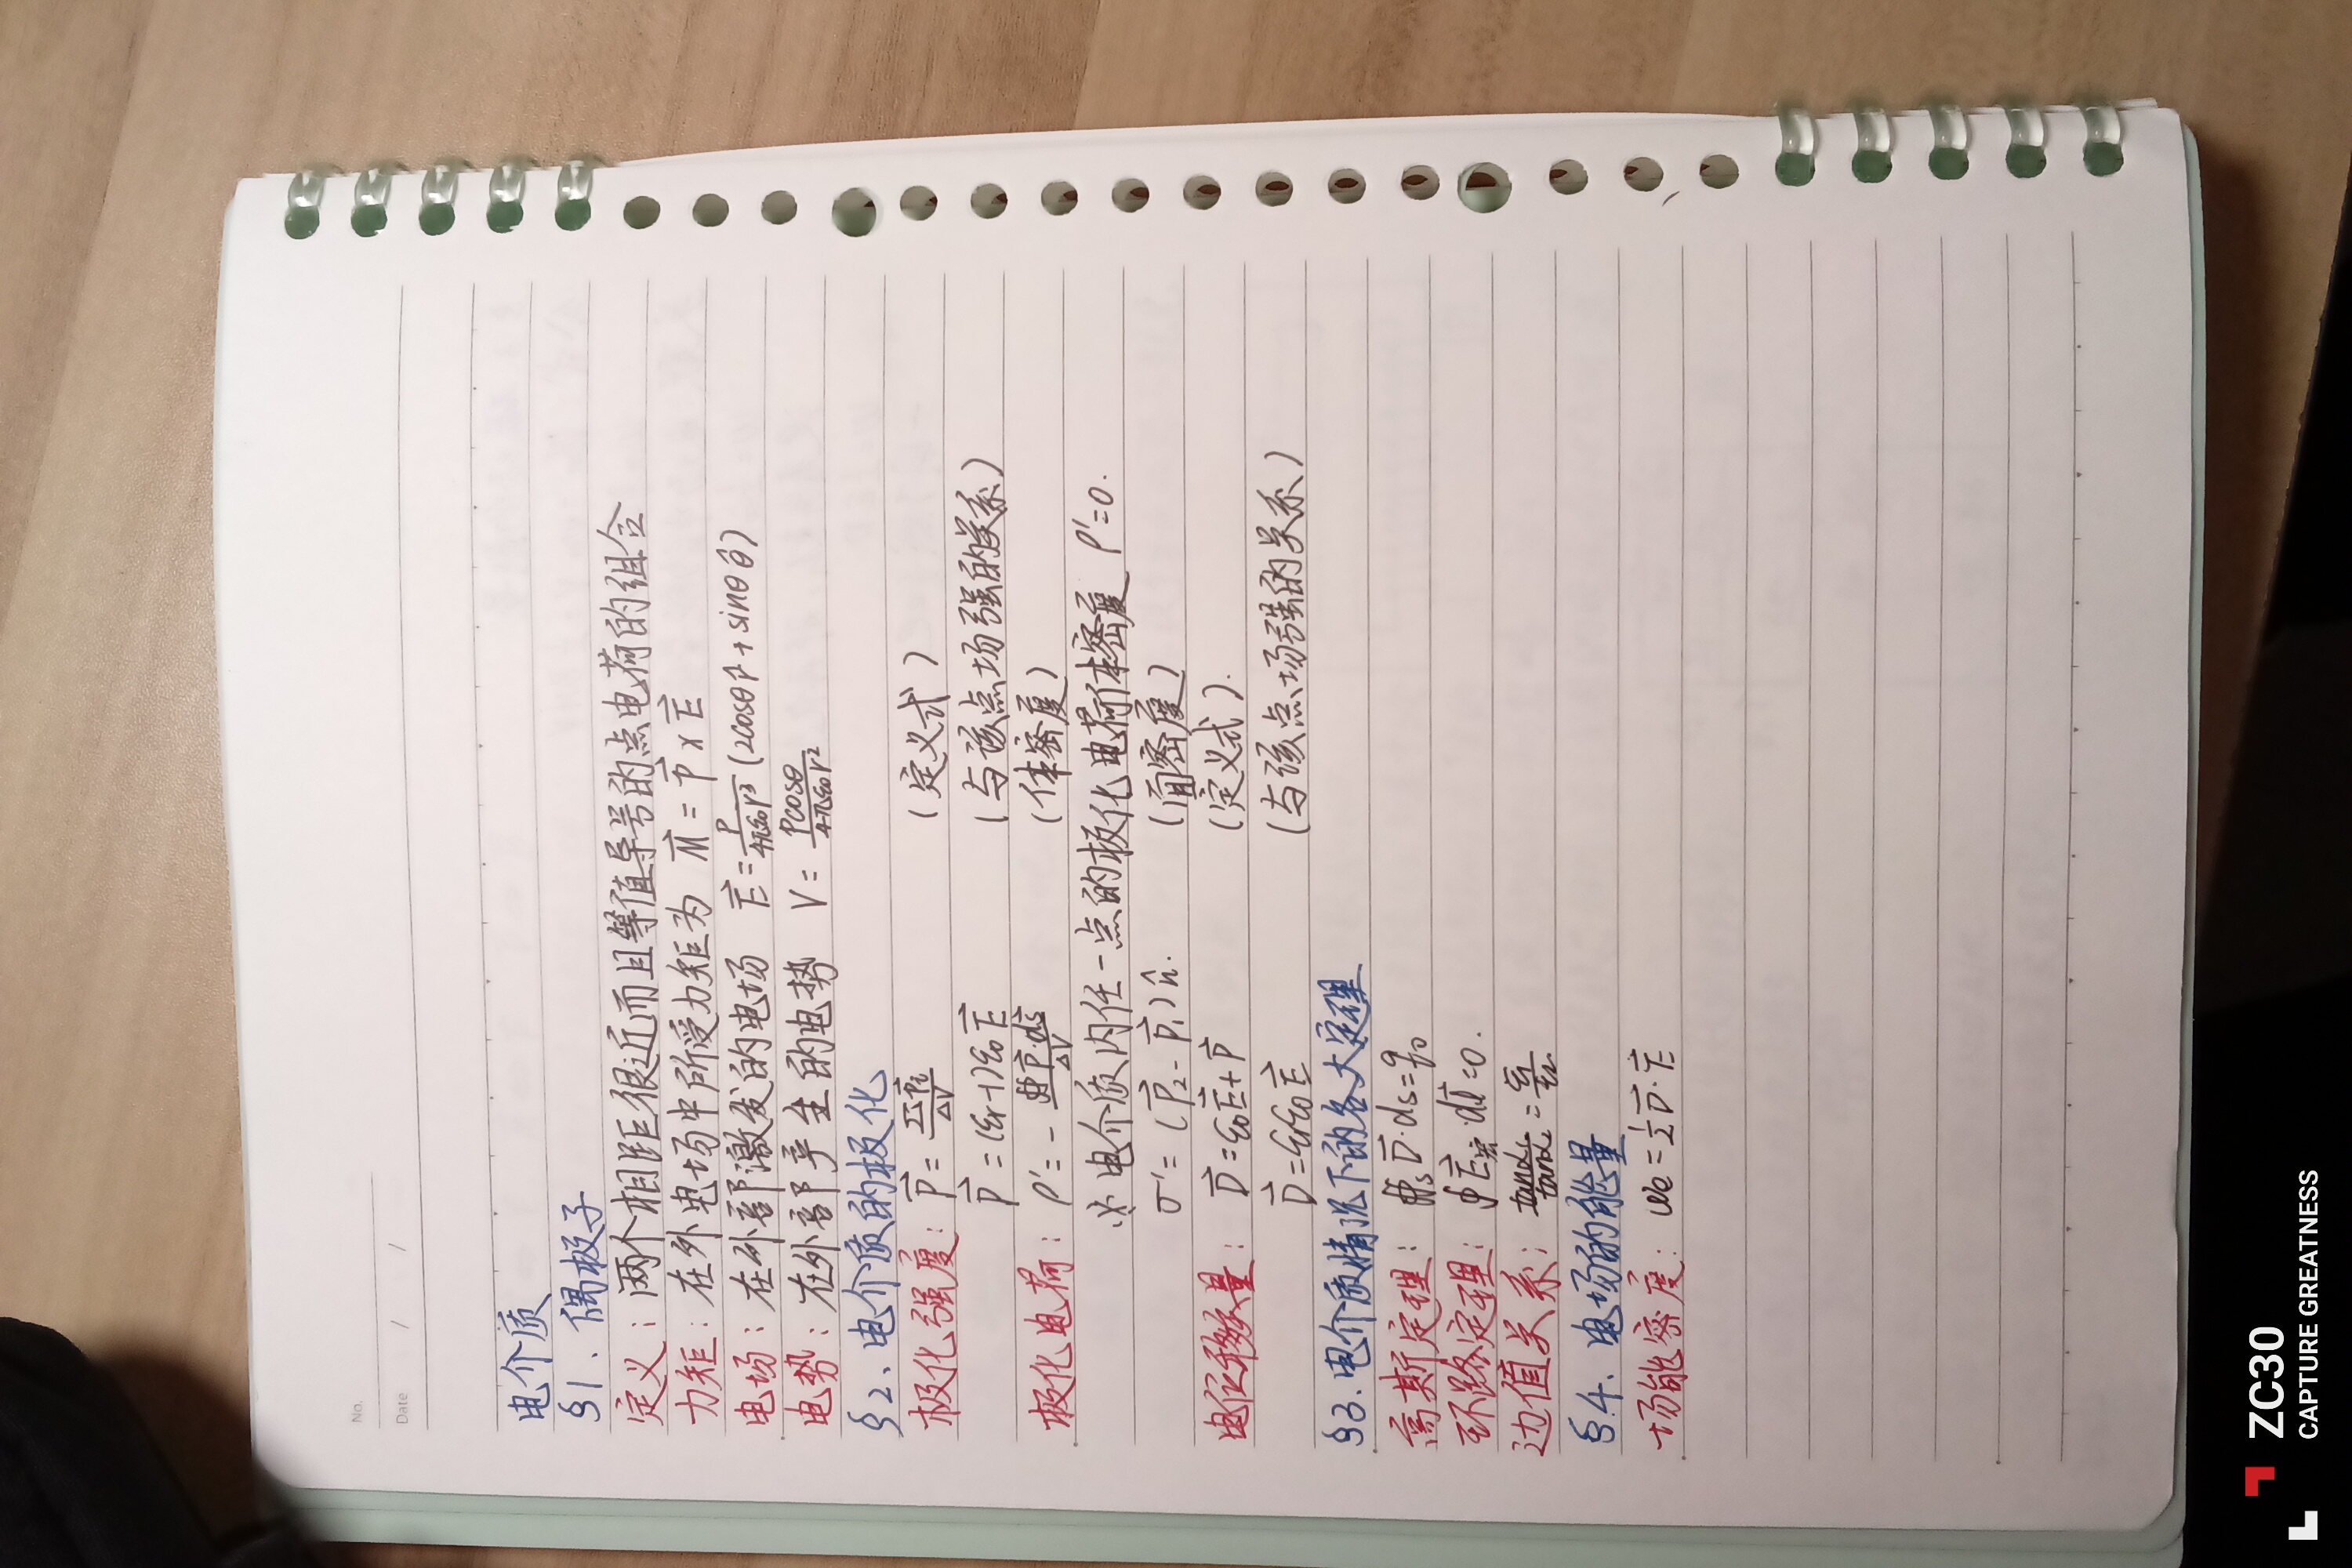 No.
Date / /
电介质
§1、偶极子
定义：两个相距很近而且等值异号的点电荷的组合
力矩：在外电场中所受力矩为 M⃗ = P⃗ × E⃗
电场：在外部激发的电场 E⃗ = P/4πε₀r³ (2cosθ r̂ + sinθ θ̂)
电势：在外部产生的电势 V = Pcosθ/4πε₀r²
§2、电介质的极化
极化强度：P⃗ = ΣP⃗ᵢ/ΔV （定义式）
P⃗ = (εr-1)ε₀E⃗ （与该点场强的关系）
极化电荷：ρ' = - ∯P⃗·ds⃗/ΔV （体密度）
※ 电介质内任一点的极化电荷体密度 ρ'=0.
σ' = (P⃗₂ - P⃗₁) n̂. （面密度）
电位移量：D⃗ = ε₀E⃗ + P⃗ （定义式）.
D⃗ = εrε₀E⃗ （与该点场强的关系）
§3、电介质情况下的各大定理
高斯定理：∯s D⃗·ds = q₀
环路定理：∮ E⃗·dl⃗ = 0.
边值关系：tanα₁/tanα₂ = ε₁/ε₂
§4、电场的能量
场能密度：ωe = ½ D⃗·E⃗
ZC30
CAPTURE GREATNESS